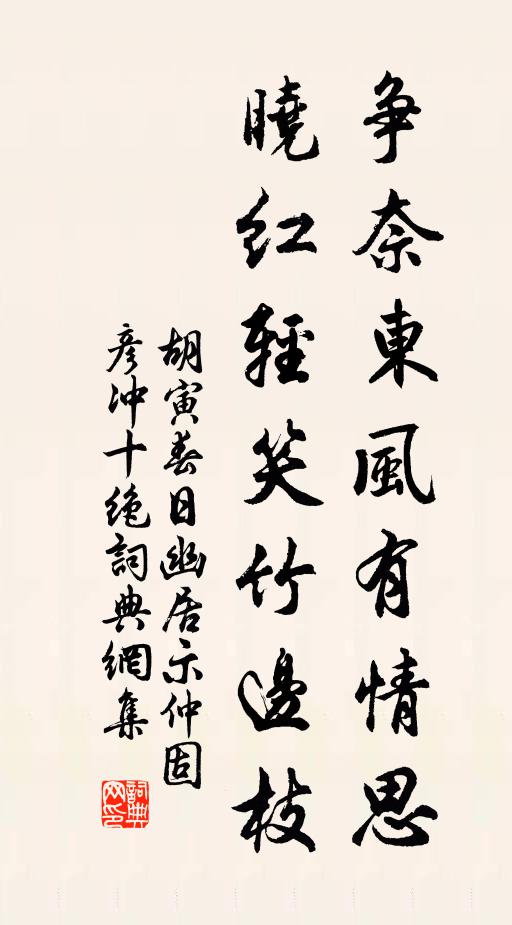 争奈東風有情思
曉紅輕笑竹邊枝
胡寅春日幽居示仲固
彦冲十絕詞典網集
詞典
网印